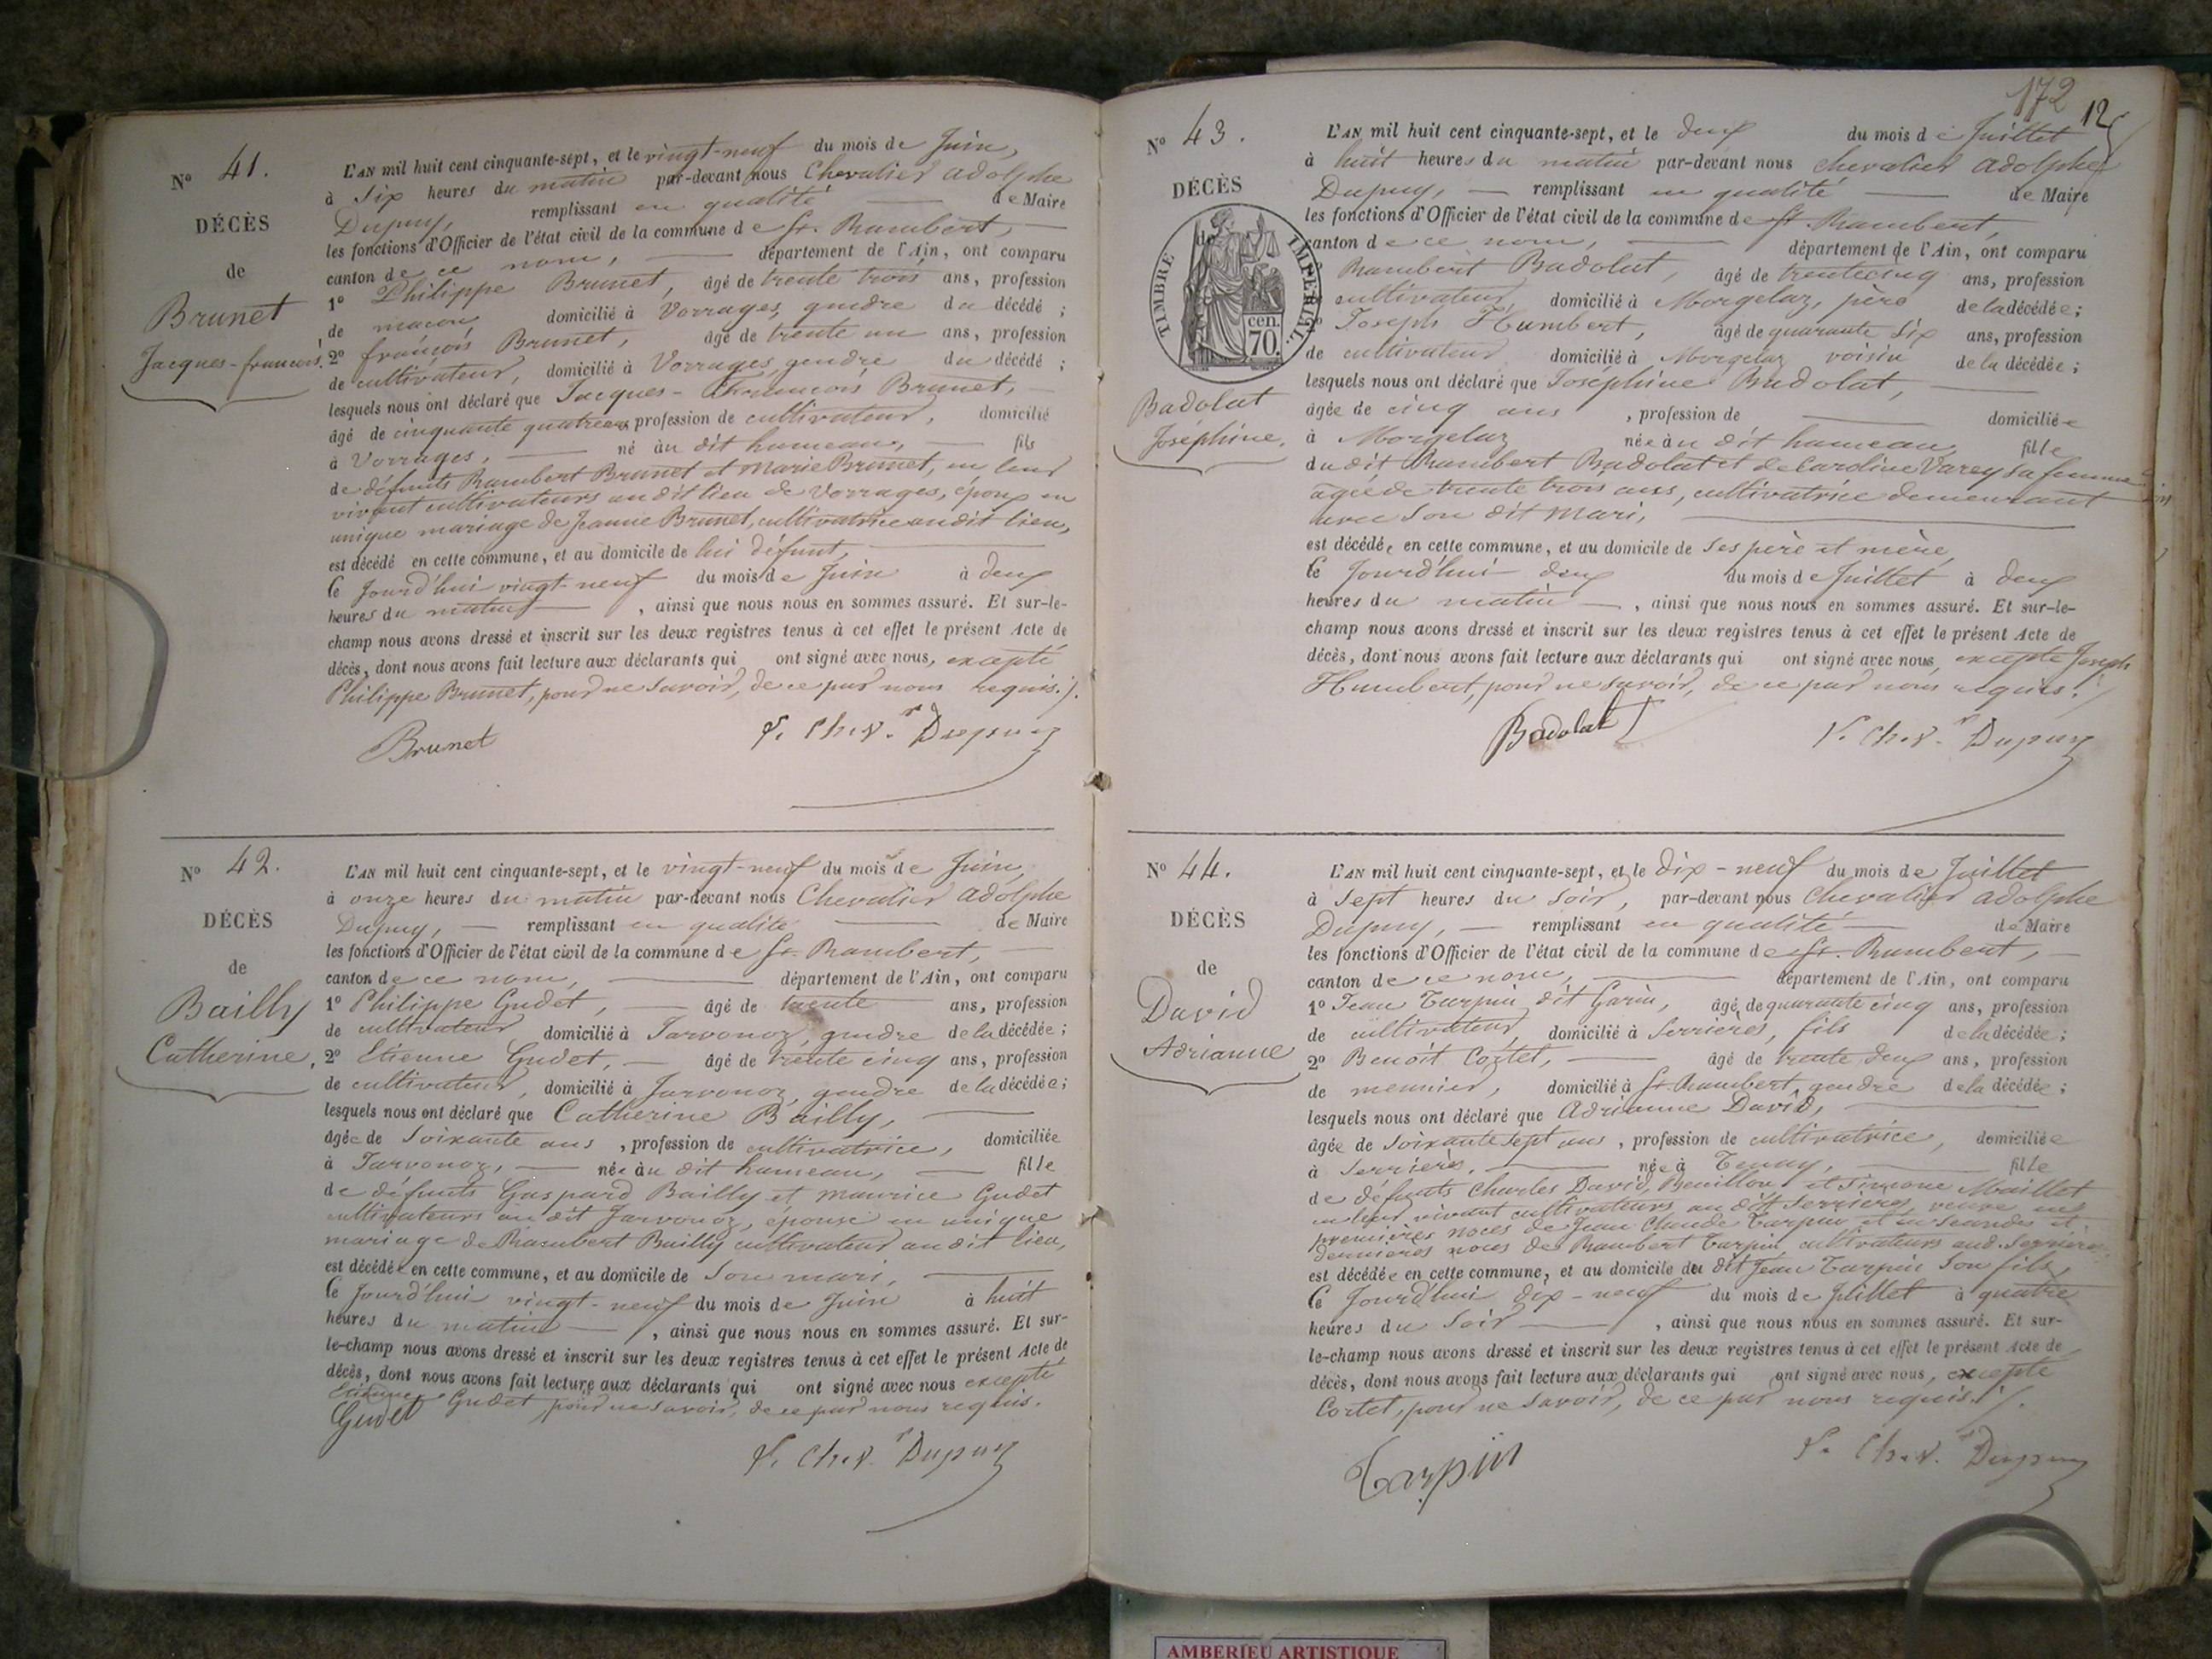 N° 41.
DÉCÈS
de
Brunet
Jacques-françois.
L'AN mil huit cent cinquante-sept, et le vingt-neuf du mois de Juin,
à Six heures du matin par-devant nous Chevalier Adolphe
Dupuy, remplissant en qualité de Maire
les fonctions d'Officier de l'état civil de la commune de St. Rambert,
canton de ce nom, département de l'Ain, ont comparu
1° Philippe Brunet, âgé de trente trois ans, profession
de maçon domicilié à Vorrages, gendre du décédé ;
2° françois Brunet, âgé de trente un ans, profession
de cultivateur, domicilié à Vorrages, gendre du décédé ;
lesquels nous ont déclaré que Jacques-françois Brunet,
âgé de cinquante quatre ans profession de cultivateur, domicilié
à Vorrages, né au dit hameau, fils
de défunts Rambert Brunet et Marie Brunet, en leur
vivant cultivateurs audit lieu de Vorrages, époux en
unique mariage de Jeanne Brunet, cultivatrice audit lieu,
est décédé en cette commune, et au domicile de lui défunt,
Ce Jourd'hui vingt-neuf du mois de Juin à deux
heures du matin, ainsi que nous nous en sommes assuré. Et sur-le-
champ nous avons dressé et inscrit sur les deux registres tenus à cet effet le présent Acte de
décès, dont nous avons fait lecture aux déclarants qui ont signé avec nous, excepté
Philippe Brunet, pour ne savoir, de ce par nous requis./.
Brunet Chev.r Dupuy
N° 42.
DÉCÈS
de
Bailly
Catherine.
L'AN mil huit cent cinquante-sept, et le vingt-neuf du mois de Juin,
à onze heures du matin par-devant nous Chevalier Adolphe
Dupuy, remplissant en qualité de Maire
les fonctions d'Officier de l'état civil de la commune de St. Rambert,
canton de ce nom, département de l'Ain, ont comparu
1° Philippe Gudet, âgé de trente ans, profession
de cultivateur domicilié à Jarvonoz, gendre de la décédée ;
2° Etienne Gudet, âgé de trente cinq ans, profession
de cultivateur, domicilié à Jarvonoz, gendre de la décédée ;
lesquels nous ont déclaré que Catherine Bailly,
âgée de Soixante ans, profession de cultivatrice, domiciliée
à Jarvonoz, née au dit hameau, fille
de défunts Gaspard Bailly et Maurice Gudet
cultivateurs au dit Jarvonoz, épouse en unique
mariage de Rambert Bailly cultivateur audit lieu,
est décédée en cette commune, et au domicile de Son mari,
Ce Jourd'hui vingt-neuf du mois de Juin à huit
heures du matin, ainsi que nous nous en sommes assuré. Et sur-
le-champ nous avons dressé et inscrit sur les deux registres tenus à cet effet le présent Acte de
décès, dont nous avons fait lecture aux déclarants qui ont signé avec nous excepté
Etienne Gudet pour ne savoir, de ce par nous requis.
Gudet
Chev.r Dupuy
172
12
N° 43.
DÉCÈS
de
TIMBRE IMPÉRIAL
cen.
70.
Badolat
Joséphine.
L'AN mil huit cent cinquante-sept, et le deux du mois de Juillet
à huit heures du matin par-devant nous Chevalier Adolphe
Dupuy, remplissant en qualité de Maire
les fonctions d'Officier de l'état civil de la commune de St. Rambert,
canton de ce nom, département de l'Ain, ont comparu
Rambert Badolat, âgé de trente cinq ans, profession
cultivateur, domicilié à Morgelaz, père de la décédée ;
2° Joseph Humbert, âgé de quarante Six ans, profession
de cultivateur domicilié à Morgelaz voisin de la décédée ;
lesquels nous ont déclaré que Joséphine Badolat,
âgée de cinq ans, profession de domiciliée
à Morgelaz née au dit hameau fille
du dit Rambert Badolat et de Caroline Varey sa femme
âgée de trente trois ans, cultivatrice demeurant
avec Son dit Mari,
est décédée en cette commune, et au domicile de Ses père et mère,
Ce Jourd'hui deux du mois de Juillet à deux
heures du matin, ainsi que nous nous en sommes assuré. Et sur-le-
champ nous avons dressé et inscrit sur les deux registres tenus à cet effet le présent Acte de
décès, dont nous avons fait lecture aux déclarants qui ont signé avec nous, excepté Joseph
Humbert, pour ne savoir, de ce par nous requis./
Badolat Chev.r Dupuy
N° 44.
DÉCÈS
de
David
Adrianne
L'AN mil huit cent cinquante-sept, et le Dix-neuf du mois de Juillet
à Sept heures du Soir, par-devant nous Chevalier Adolphe
Dupuy, remplissant en qualité de Maire
les fonctions d'Officier de l'état civil de la commune de St. Rambert,
canton de ce nom, département de l'Ain, ont comparu
1° Jean Tarpin dit Garin, âgé de quarante cinq ans, profession
de cultivateur, domicilié à Serrières, fils de la décédée ;
2° Benoit Cortet, âgé de trente deux ans, profession
de meunier, domicilié à St. Rambert, gendre de la décédée ;
lesquels nous ont déclaré que Adrianne David,
âgée de Soixante Sept ans, profession de cultivatrice, domiciliée
à Serrières, née à Tenay, fille
de défunts Charles David, Bouillou et Simone Maillet
en leur vivant cultivateurs au dit Serrières, veuve en
premières noces de Jean Claude Tarpin et en Secondes et
dernières noces de Rambert Tarpin cultivateurs aud. Serrières
est décédée en cette commune, et au domicile du dit Jean Tarpin Son fils,
Ce Jourd'hui dix-neuf du mois de Juillet à quatre
heures du Soir, ainsi que nous nous en sommes assuré. Et sur-
le-champ nous avons dressé et inscrit sur les deux registres tenus à cet effet le présent Acte de
décès, dont nous avons fait lecture aux déclarants qui ont signé avec nous, excepté
Cortet, pour ne savoir, de ce par nous requis./.
Tarpin Chev.r Dupuy
AMBERIEU ARTISTIQUE